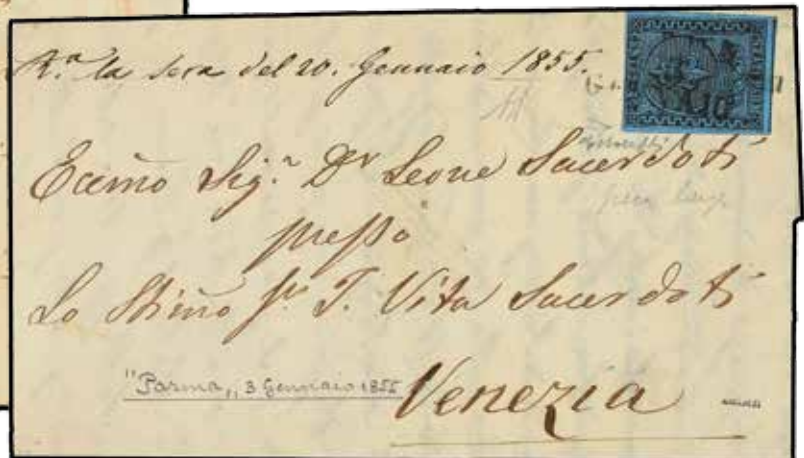 R.ª la sera del 20. Gennaio 1855.
Ecc̃mo Sig.ʳ Dʳ Leone Sacerdoti
presso
Lo Stim̃o Sʳ J. Vita Sacerdoti
"Parma„ 3 Gennaio 1855
Venezia